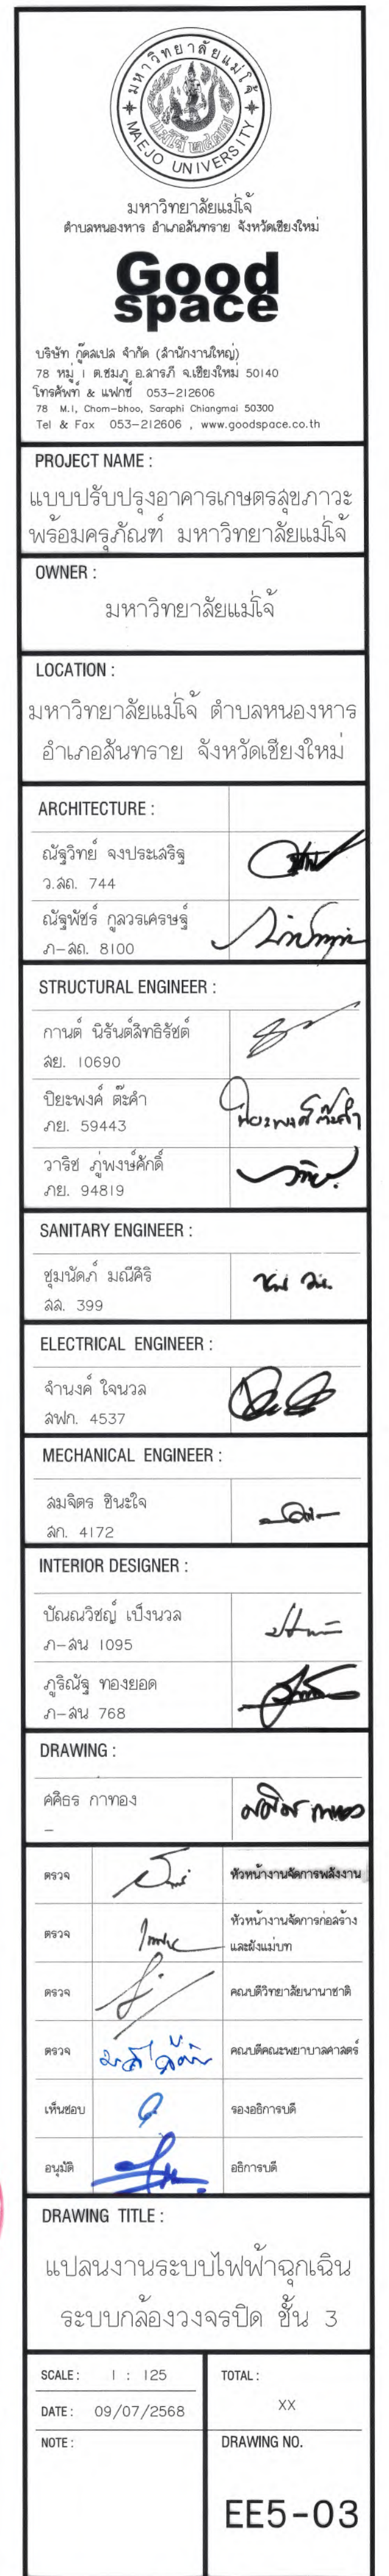 มหาวิทยาลัยแม่โจ้
MAEJO UNIVERSITY
มหาวิทยาลัยแม่โจ้
ตำบลหนองหาร อำเภอสันทราย จังหวัดเชียงใหม่
Good
space
บริษัท กู๊ดสเปส จำกัด (สำนักงานใหญ่)
78 หมู่ 1 ต.ชมภู อ.สารภี จ.เชียงใหม่ 50140
โทรศัพท์ & แฟกซ์ 053-212606
78 M.1, Chom-bhoo, Saraphi Chiangmai 50300
Tel & Fax 053-212606 , www.goodspace.co.th
PROJECT NAME :
แบบปรับปรุงอาคารเกษตรสุขภาวะ
พร้อมครุภัณฑ์ มหาวิทยาลัยแม่โจ้
OWNER :
มหาวิทยาลัยแม่โจ้
LOCATION :
มหาวิทยาลัยแม่โจ้ ตำบลหนองหาร
อำเภอสันทราย จังหวัดเชียงใหม่
ARCHITECTURE :
ณัฐวิทย์ จงประเสริฐ
ว.สถ. 744
ณัฐพัชร์ กูลวรเศรษฐ์
ภ-สถ. 8100
STRUCTURAL ENGINEER :
กานต์ นิรันต์สิทธิรัชต์
สย. 10690
ปิยะพงค์ ต๊ะคำ
ภย. 59443
ปิยะพงค์ ต๊ะคำ
วาริช ภู่พงษ์ศักดิ์
ภย. 94819
SANITARY ENGINEER :
ชุมนัดภ์ มณีคิริ
สส. 399
ELECTRICAL ENGINEER :
จำนงค์ ใจนวล
สฟก. 4537
MECHANICAL ENGINEER :
สมจิตร ชินะใจ
สก. 4172
INTERIOR DESIGNER :
ปัณณวิชญ์ เป็งนวล
ภ-สน 1095
ภูริณัฐ ทองยอด
ภ-สน 768
DRAWING :
ศศิธร กาทอง
-
ตรวจ หัวหน้างานจัดการพลังงาน
ตรวจ หัวหน้างานจัดการก่อสร้าง
และผังแม่บท
ตรวจ คณบดีวิทยาลัยนานาชาติ
ตรวจ คณบดีคณะพยาบาลศาสตร์
เห็นชอบ รองอธิการบดี
อนุมัติ อธิการบดี
DRAWING TITLE :
แปลนงานระบบไฟฟ้าฉุกเฉิน
ระบบกล้องวงจรปิด ชั้น 3
SCALE : 1 : 125
TOTAL :
XX
DATE : 09/07/2568
NOTE :
DRAWING NO.
EE5-03